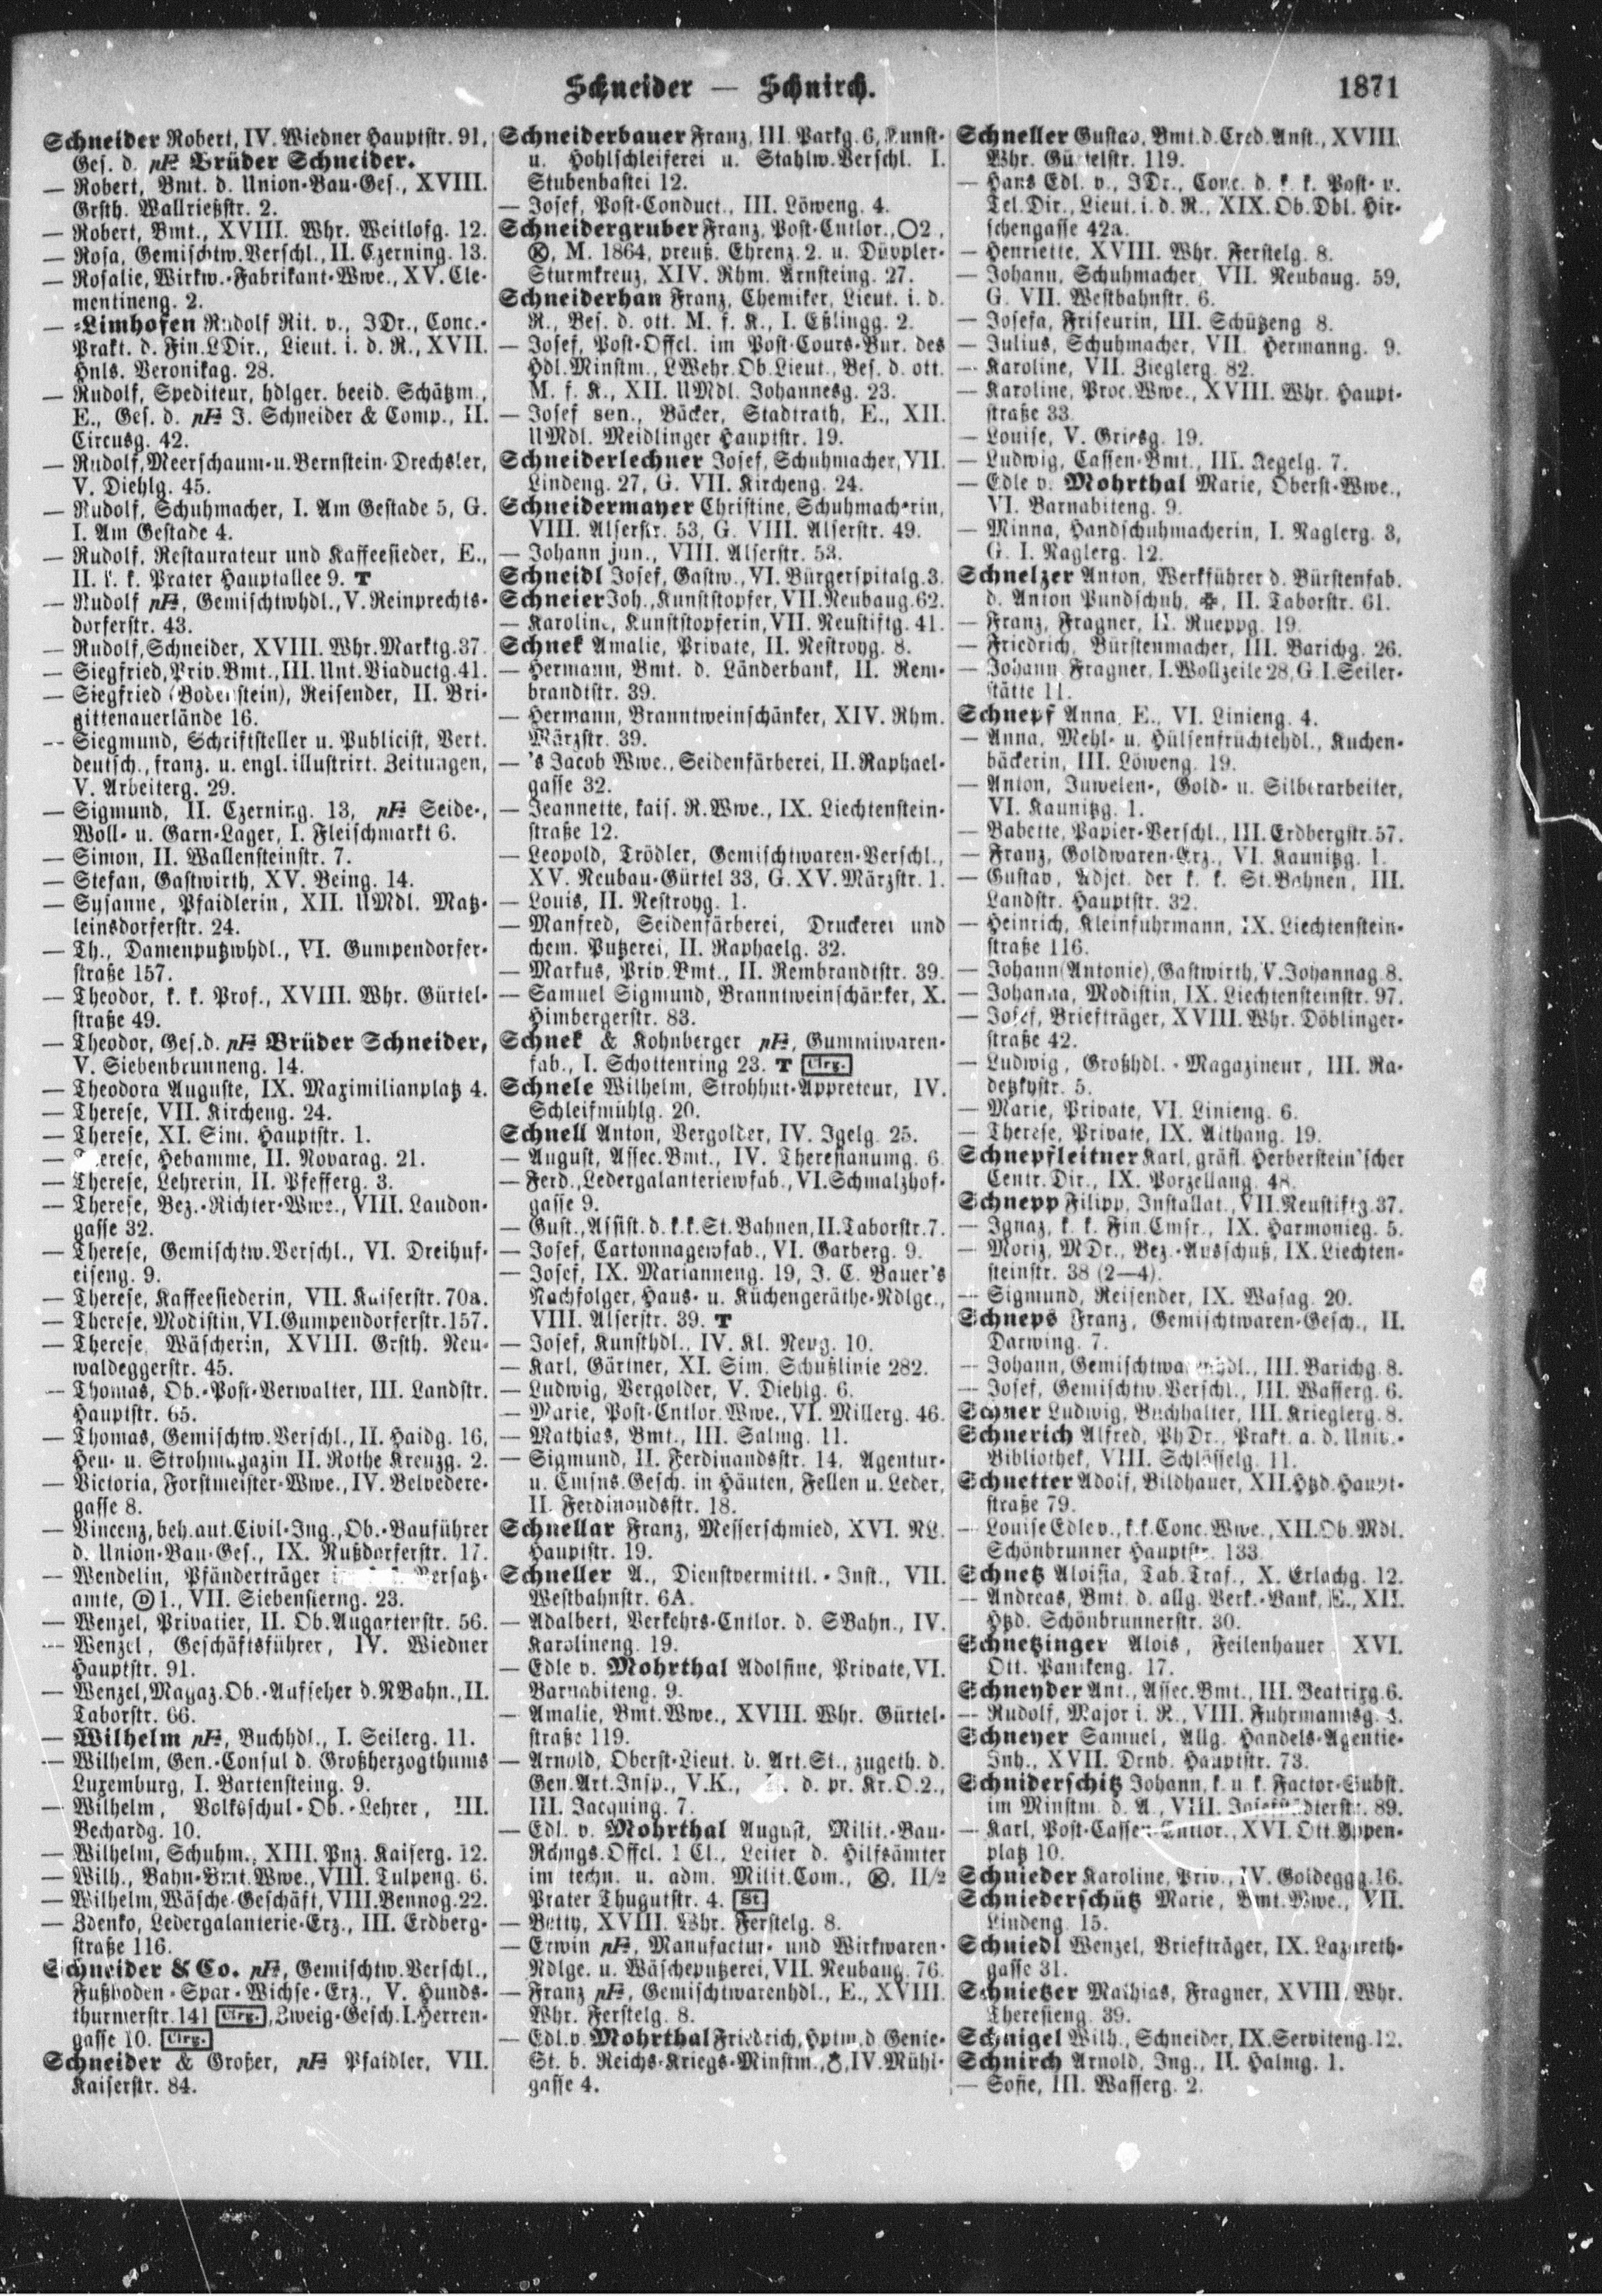 Schneider — Schnirch.
1871
Schneider Robert, IV. Wiedner Hauptstr. 91,
Ges. d. pF: Brüder Schneider.
— Robert, Bmt. d. Union-Bau-Ges., XVIII.
Grsth. Wallrießstr. 2.
— Robert, Bmt., XVIII. Whr. Weitlofg. 12.
— Rosa, Gemischtw.Verschl., II. Czerning. 13.
— Rosalie, Wirkw.-Fabrikant-Wwe., XV. Cle-
mentineng. 2.
— -Limhofen Rudolf Rit. v., JDr., Conc.-
Prakt. d. Fin.LDir., Lieut. i. d. R., XVII.
Hnls. Veronikag. 28.
— Rudolf, Spediteur, hdlger. beeid. Schätzm.,
E., Ges. d. pF: J. Schneider & Comp., II.
Circusg. 42.
— Rudolf, Meerschaum-u.Bernstein-Drechsler,
V. Diehlg. 45.
— Rudolf, Schuhmacher, I. Am Gestade 5, G.
I. Am Gestade 4.
— Rudolf, Restaurateur und Kaffeesieder, E.,
II. k. k. Prater Hauptallee 9. T
— Rudolf pF:, Gemischtwhdl., V. Reinprechts-
dorferstr. 43.
— Rudolf, Schneider, XVIII. Whr. Marktg. 37.
— Siegfried, Priv.Bmt., III. Unt.Viaductg. 41.
— Siegfried (Bodenstein), Reisender, II. Bri-
gittenauerlände 16.
— Siegmund, Schriftsteller u. Publicist, Vert.
deutsch., franz. u. engl. illustrirt. Zeitungen,
V. Arbeiterg. 29.
— Sigmund, II. Czerning. 13, pF: Seide-,
Woll- u. Garn-Lager, I. Fleischmarkt 6.
— Simon, II. Wallensteinstr. 7.
— Stefan, Gastwirth, XV. Being. 14.
— Susanne, Pfaidlerin, XII. UMdl. Matz-
leinsdorferstr. 24.
— Th., Damenputzwhdl., VI. Gumpendorfer-
straße 157.
— Theodor, k. k. Prof., XVIII. Whr. Gürtel-
straße 49.
— Theodor, Ges.d. pF: Brüder Schneider,
V. Siebenbrunneng. 14.
— Theodora Auguste, IX. Maximilianplatz 4.
— Therese, VII. Kircheng. 24.
— Therese, XI. Sim. Hauptstr. 1.
— Therese, Hebamme, II. Novarag. 21.
— Therese, Lehrerin, II. Pfefferg. 3.
— Therese, Bez.-Richter-Wwe., VIII. Laudon-
gasse 32.
— Therese, Gemischtw.Verschl., VI. Dreihuf-
eiseng. 9.
— Therese, Kaffeesiederin, VII. Kaiserstr. 70a.
— Therese, Modistin, VI. Gumpendorferstr. 157.
— Therese, Wäscherin, XVIII. Grsth. Neu-
waldeggerstr. 45.
— Thomas, Ob.-Post-Verwalter, III. Landstr.
Hauptstr. 65.
— Thomas, Gemischtw.Verschl., II. Haidg. 16,
Heu- u. Strohmagazin II. Rothe Kreuzg. 2.
— Victoria, Forstmeister-Wwe., IV. Belvedere-
gasse 8.
— Vincenz, beh.aut.Civil-Ing., Ob.-Bauführer
d. Union-Bau-Ges., IX. Nußdorferstr. 17.
— Wendelin, Pfänderträger Versatz-
amte, Ⓓ 1., VII. Siebensterng. 23.
— Wenzel, Privatier, II. Ob. Augartenstr. 56.
— Wenzel, Geschäftsführer, IV. Wiedner
Hauptstr. 91.
— Wenzel, Magaz.Ob.-Aufseher d.NBahn., II.
Taborstr. 66.
— Wilhelm pF:, Buchhdl., I. Seilerg. 11.
— Wilhelm, Gen.-Consul d. Großherzogthums
Luxemburg, I. Bartensteing. 9.
— Wilhelm, Volksschul-Ob.-Lehrer, III.
Bechardg. 10.
— Wilhelm, Schuhm., XIII. Pnz. Kaiserg. 12.
— Wilh., Bahn-Bmt.Wwe., VIII. Tulpeng. 6.
— Wilhelm, Wäsche-Geschäft, VIII. Bennog. 22.
— Zdenko, Ledergalanterie-Erz., III. Erdberg-
straße 116.
Schneider & Co. pF:, Gemischtw.Verschl.,
Fußboden-Spar-Wichse-Erz., V. Hunds-
thurmerstr. 141 Clrg., Zweig-Gesch. I. Herren-
gasse 10. Clrg.
Schneider & Großer, pF: Pfaidler, VII.
Kaiserstr. 84.
Schneiderbauer Franz, III. Parkg. 6, Kunst-
u. Hohlschleiferei u. Stahlw.Verschl. I.
Stubenbastei 12.
— Josef, Post-Conduct., III. Löweng. 4.
Schneidergruber Franz, Post-Cntlor., O2.,
Ⓚ, M. 1864, preuß. Ehrenz. 2. u. Düppler-
Sturmkreuz, XIV. Rhm. Arnsteing. 27.
Schneiderhan Franz, Chemiker, Lieut. i. d.
R., Bes. d. ott. M. f. K., I. Eßlingg. 2.
— Josef, Post-Offcl. im Post-Cours-Bur. des
Hdl.Minstm., LWehr.Ob.Lieut., Bes. d. ott.
M. f. K., XII. UMdl. Johannesg. 23.
— Josef sen., Bäcker, Stadtrath, E., XII.
UMdl. Meidlinger Hauptstr. 19.
Schneiderlechner Josef, Schuhmacher, VII.
Lindeng. 27, G. VII. Kircheng. 24.
Schneidermayer Christine, Schuhmacherin,
VIII. Alserstr. 53, G. VIII. Alserstr. 49.
— Johann jun., VIII. Alserstr. 53.
Schneidl Josef, Gastw., VI. Bürgerspitalg. 3.
Schneier Joh., Kunststopfer, VII. Neubaug. 62.
— Karoline, Kunststopferin, VII. Neustiftg. 41.
Schnek Amalie, Private, II. Nestroyg. 8.
— Hermann, Bmt. d. Länderbank, II. Rem-
brandtstr. 39.
— Hermann, Branntweinschänker, XIV. Rhm.
Märzstr. 39.
— 's Jacob Wwe., Seidenfärberei, II. Raphael-
gasse 32.
— Jeannette, kais. R.Wwe., IX. Liechtenstein-
straße 12.
— Leopold, Trödler, Gemischtwaren-Verschl.,
XV. Neubau-Gürtel 33, G. XV. Märzstr. 1.
— Louis, II. Nestroyg. 1.
— Manfred, Seidenfärberei, Druckerei und
chem. Putzerei, II. Raphaelg. 32.
— Markus, Priv.Bmt., II. Rembrandtstr. 39.
— Samuel Sigmund, Branntweinschänker, X.
Himbergerstr. 83.
Schnek & Kohnberger pF:, Gummiwaren-
fab., I. Schottenring 23. T Clrg.
Schnele Wilhelm, Strohhut-Appreteur, IV.
Schleifmühlg. 20.
Schnell Anton, Vergolder, IV. Igelg. 25.
— August, Assec.Bmt., IV. Theresianumg. 6.
— Ferd., Ledergalanteriewfab., VI. Schmalzhof-
gasse 9.
— Gust., Assist. d.k.k.St.Bahnen, II. Taborstr. 7.
— Josef, Cartonnagewfab., VI. Garberg. 9.
— Josef, IX. Marianneng. 19, J. C. Bauer's
Nachfolger, Haus- u. Küchengeräthe-Ndlge.,
VIII. Alserstr. 39. T
— Josef, Kunsthdl., IV. Kl. Neug. 10.
— Karl, Gärtner, XI. Sim. Schußlinie 282.
— Ludwig, Vergolder, V. Diehlg. 6.
— Marie, Post-Cntlor.Wwe., VI. Millerg. 46.
— Mathias, Bmt., III. Salmg. 11.
— Sigmund, II. Ferdinandsstr. 14, Agentur-
u. Cmsns.Gesch. in Häuten, Fellen u. Leder,
II. Ferdinandsstr. 18.
Schnellar Franz, Messerschmied, XVI. NL.
Hauptstr. 19.
Schneller A., Dienstvermittl.-Inst., VII.
Westbahnstr. 6A.
— Adalbert, Verkehrs-Cntlor. d. SBahn., IV.
Karolineng. 19.
— Edle v. Mohrthal Adolfine, Private, VI.
Barnabiteng. 9.
— Amalie, Bmt.Wwe., XVIII. Whr. Gürtel-
straße 119.
— Arnold, Oberst-Lieut. d. Art.St., zugeth. d.
Gen.Art.Insp., V.K., d. pr. Kr.O.2.,
III. Jacquing. 7.
— Edl. v. Mohrthal August, Milit.-Bau-
Rchngs.Offcl. 1 Cl., Leiter d. Hilfsämter
im techn. u. adm. Milit.Com., Ⓚ, II/2
Prater Thugutstr. 4. St.
— Betty, XVIII. Whr. Ferstelg. 8.
— Erwin pF:, Manufactur- und Wirkwaren-
Ndlge. u. Wäscheputzerei, VII. Neubaug. 76.
— Franz pF:, Gemischtwarenhdl., E., XVIII.
Whr. Ferstelg. 8.
— Edl.v. Mohrthal Friedrich, Hptm. d Genie-
St. b. Reichs-Kriegs-Minstm., IV. Mühl-
gasse 4.
Schneller Gustav, Bmt.d.Cred.Anst., XVIII.
Whr. Gürtelstr. 119.
— Hans Edl. v., JDr., Conc. d. k. k. Post- u.
Tel.Dir., Lieut. i. d. R., XIX. Ob.Dbl. Hir-
schengasse 42a.
— Henriette, XVIII. Whr. Ferstelg. 8.
— Johann, Schuhmacher, VII. Neubaug. 59,
G. VII. Westbahnstr. 6.
— Josefa, Friseurin, III. Schützeng 8.
— Julius, Schuhmacher, VII. Hermanng. 9.
— Karoline, VII. Zieglerg. 82.
— Karoline, Proc.Wwe., XVIII. Whr. Haupt-
straße 33.
— Louise, V. Griesg. 19.
— Ludwig, Cassen-Bmt., III. Kegelg. 7.
— Edle v. Mohrthal Marie, Oberst-Wwe.,
VI. Barnabiteng. 9.
— Minna, Handschuhmacherin, I. Naglerg. 3,
G. I. Naglerg. 12.
Schnelzer Anton, Werkführer d. Bürstenfab.
d. Anton Pundschuh, ✠, II. Taborstr. 61.
— Franz, Fragner, II. Rueppg. 19.
— Friedrich, Bürstenmacher, III. Barichg. 26.
— Johann Fragner, I. Wollzeile 28, G. I. Seiler-
stätte 11.
Schnepf Anna, E., VI. Linieng. 4.
— Anna, Mehl- u. Hülsenfrüchtehdl., Kuchen-
bäckerin, III. Löweng. 19.
— Anton, Juwelen-, Gold- u. Silberarbeiter,
VI. Kaunitzg. 1.
— Babette, Papier-Verschl., III. Erdbergstr. 57.
— Franz, Goldwaren-Erz., VI. Kaunitzg. 1.
— Gustav, Adjct. der k. k. St.Bahnen, III.
Landstr. Hauptstr. 32.
— Heinrich, Kleinfuhrmann, IX. Liechtenstein-
straße 116.
— Johann (Antonie), Gastwirth, V. Johannag. 8.
— Johanna, Modistin, IX. Liechtensteinstr. 97.
— Josef, Briefträger, XVIII. Whr. Döblinger-
straße 42.
— Ludwig, Großhdl.-Magazineur, III. Ra-
detzkystr. 5.
— Marie, Private, VI. Linieng. 6.
— Therese, Private, IX. Althang. 19.
Schnepfleitner Karl, gräfl. Herberstein'scher
Centr.Dir., IX. Porzellang. 48.
Schnepp Filipp, Installat., VII. Neustiftg. 37.
— Ignaz, k. k. Fin.Cmsr., IX. Harmonieg. 5.
— Moriz, MDr., Bez.-Ausschuß, IX. Liechten-
steinstr. 38 (2—4).
— Sigmund, Reisender, IX. Wasag. 20.
Schneps Franz, Gemischtwaren-Gesch., II.
Darwing. 7.
— Johann, Gemischtwarenhdl., III. Barichg. 8.
— Josef, Gemischtw.Verschl., III. Wasserg. 6.
Schner Ludwig, Buchhalter, III. Krieglerg. 8.
Schnerich Alfred, PhDr., Prakt. a. d. Univ.-
Bibliothek, VIII. Schlösselg. 11.
Schnetter Adolf, Bildhauer, XII. Htzd. Haupt-
straße 79.
— Louise Edle v., k.k.Conc.Wwe., XII. Ob.Mdl.
Schönbrunner Hauptstr. 133.
Schnetz Aloisia, Tab.Traf., X. Erlachg. 12.
— Andreas, Bmt. d. allg. Verk.-Bank, E., XII.
Htzd. Schönbrunnerstr. 30.
Schnetzinger Alois, Feilenhauer XVI.
Ott. Panikeng. 17.
Schneyder Ant., Assec.Bmt., III. Beatrixg. 6.
— Rudolf, Major i. R., VIII. Fuhrmannsg.
Schneyer Samuel, Allg. Handels-Agentie-
Inh., XVII. Drnb. Hauptstr. 73.
Schniderschitz Johann, k. u. k. Factor-Subst.
im Minstm. d. A., VIII. Josefstädterstr. 89.
— Karl, Post-Cassen-Cntlor., XVI. Ott. Yppen-
platz 10.
Schnieder Karoline, Priv., IV. Goldeggg. 16.
Schniederschütz Marie, Bmt.Wwe., VII.
Lindeng. 15.
Schniedl Wenzel, Briefträger, IX. Lazareth-
gasse 31.
Schnietzer Mathias, Fragner, XVIII. Whr.
Theresieng. 39.
Schnigel Wilh., Schneider, IX. Serviteng. 12.
Schnirch Arnold, Ing., II. Halmg. 1.
— Sofie, III. Wasserg. 2.